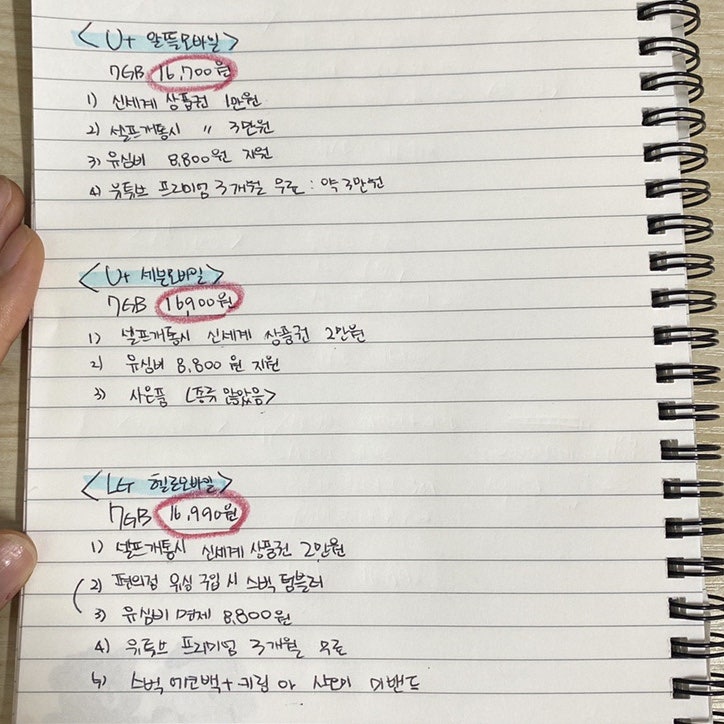 <U+ 알뜰모바일>
7GB 16,700원
1) 신세계 상품권 1만원
2) 셀프개통시 〃 3만원
3) 유심비 8,800원 지원
4) 유튜브 프리미엄 3개월 무료 : 약3만원
<U+ 세븐모바일>
7GB 16,900원
1) 셀프개통시 신세계 상품권 2만원
2) 유심비 8,800원 지원
3) 사은품 (종류 많았음)
<LG 헬로모바일>
7GB 16,990원
1) 셀프개통시 신세계상품권 2만원
2) 편의점 유심 구입 시 스벅 텀블러
3) 유심비 면제 8,800원
4) 유튜브 프리미엄 3개월 무료
5) 스벅 에코백+키링 or 샤오미 미밴드